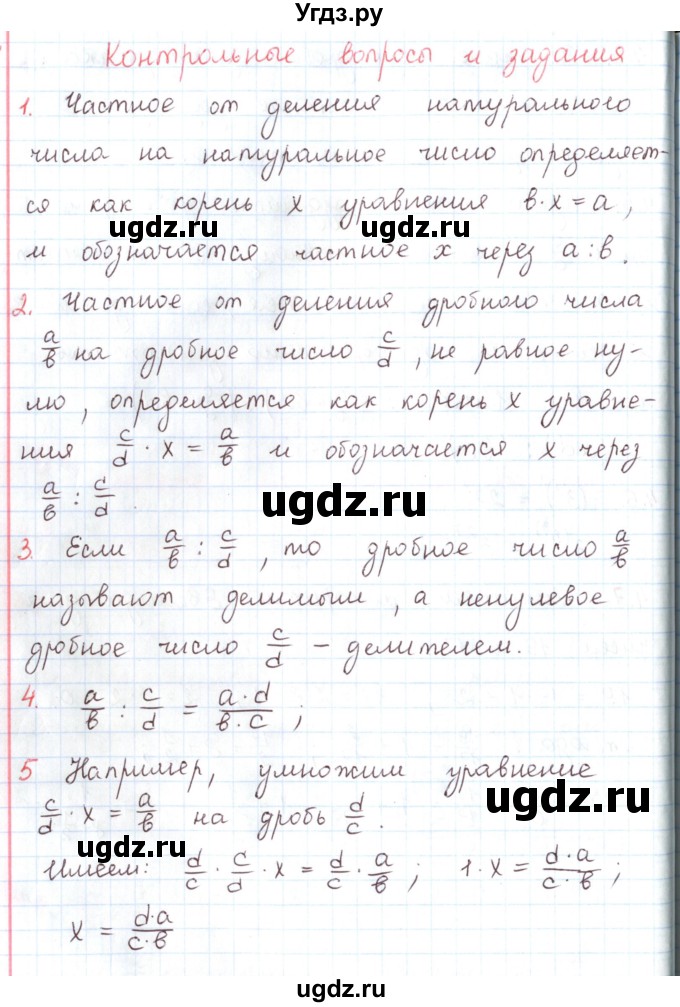 Угдз.ру
Контрольные вопросы и задания
1. Частное от деления натурального
числа на натуральное число определяет-
ся как корень x уравнения в·x=a,
ugdz.ru ugdz.ru
и обозначается частное x через a:в.
2. Частное от деления дробного числа
a/в на дробное число c/d, не равное ну-
лю, определяется как корень x уравне-
ния c/d · x = a/в и обозначается x через
a/в : c/d.
ugdz.ru ugdz.ru
3. Если a/в : c/d, то дробное число a/в
называют делимым, а ненулевое
дробное число c/d – делителем.
4. a/в : c/d = a·d/в·c ;
5 Например, умножим уравнение
c/d · x = a/в на дробь d/c.
ugdz.ru
ugdz.ru
Имеем: d/c · c/d · x = d/c · a/в ; 1·x = d·a/c·в ;
x = d·a/c·в
ugdz.ru